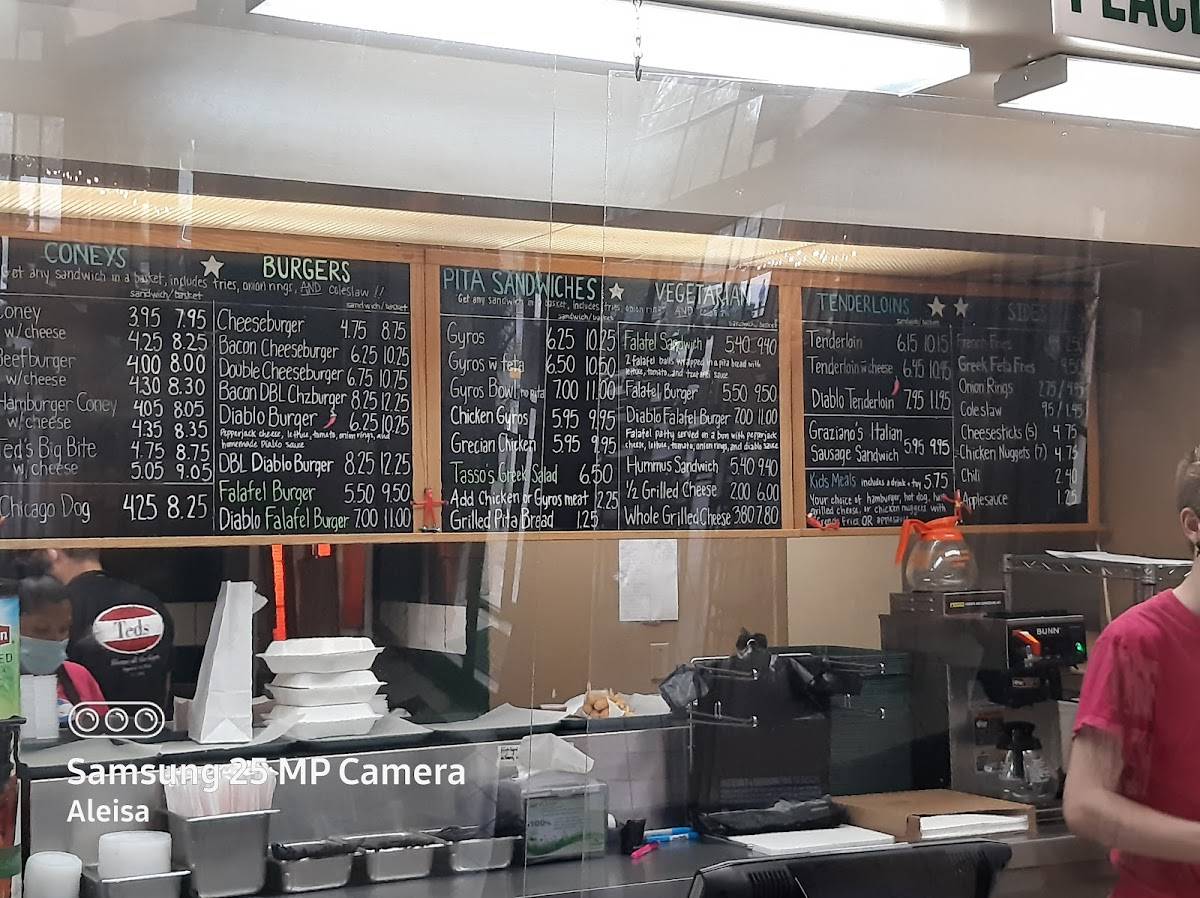 PLACE
CONEYS
Get any sandwich in a basket, includes fries, onion rings, AND coleslaw!!
sandwich/basket
Coney 3.95 7.95
w/cheese 4.25 8.25
Beefburger 4.00 8.00
w/cheese 4.30 8.30
Hamburger Coney 4.05 8.05
w/cheese 4.35 8.35
Ted's Big Bite 4.75 8.75
w/cheese 5.05 9.05
Chicago Dog 4.25 8.25
BURGERS
sandwich/basket
Cheeseburger 4.75 8.75
Bacon Cheeseburger 6.25 10.25
Double Cheeseburger 6.75 10.75
Bacon DBL Chzburger 8.25 12.25
Diablo Burger 6.25 10.25
Pepperjack cheese, lettuce, tomato, onion rings, and
homemade Diablo sauce
DBL Diablo Burger 8.25 12.25
Falafel Burger 5.50 9.50
Diablo Falafel Burger 7.00 11.00
PITA SANDWICHES
Get any sandwich in a basket, includes fries, onion rings AND coleslaw
sandwich/basket
Gyros 6.25 10.25
Gyros w feta 6.50 10.50
Gyros Bowl no pita 7.00 11.00
Chicken Gyros 5.95 9.95
Grecian Chicken 5.95 9.95
Tasso's Greek Salad 6.50
Add Chicken or Gyros meat 2.25
Grilled Pita Bread 1.25
VEGETARIAN
sandwich/basket
Falafel Sandwich 5.40 9.40
2 falafel balls wrapped in a pita bread with
lettuce, tomato, and sauce
Falafel Burger 5.50 9.50
Diablo Falafel Burger 7.00 11.00
Falafel patty served on a bun with pepperjack
cheese, lettuce, tomato, onion rings, and diablo sauce
Hummus Sandwich 5.40 9.40
1/2 Grilled Cheese 2.00 6.00
Whole Grilled Cheese 3.80 7.80
TENDERLOINS
sandwich/basket
Tenderloin 6.15 10.15
Tenderloin w cheese 6.45 10.45
Diablo Tenderloin 7.95 11.95
Graziano's Italian
Sausage Sandwich 5.95 9.95
Kids Meals includes a drink + toy 5.75
Your choice of hamburger, hot dog, half
grilled cheese, or chicken nuggets with
French Fries OR applesauce
SIDES
French Fries
Greek Feta Fries
Onion Rings 2.75 / 4.95
Coleslaw .95 / 1.45
Cheesesticks (5) 4.75
Chicken Nuggets (7) 4.75
Chili 2.40
Applesauce 1.25
Teds
BUNN
100%
Samsung 25 MP Camera
Aleisa